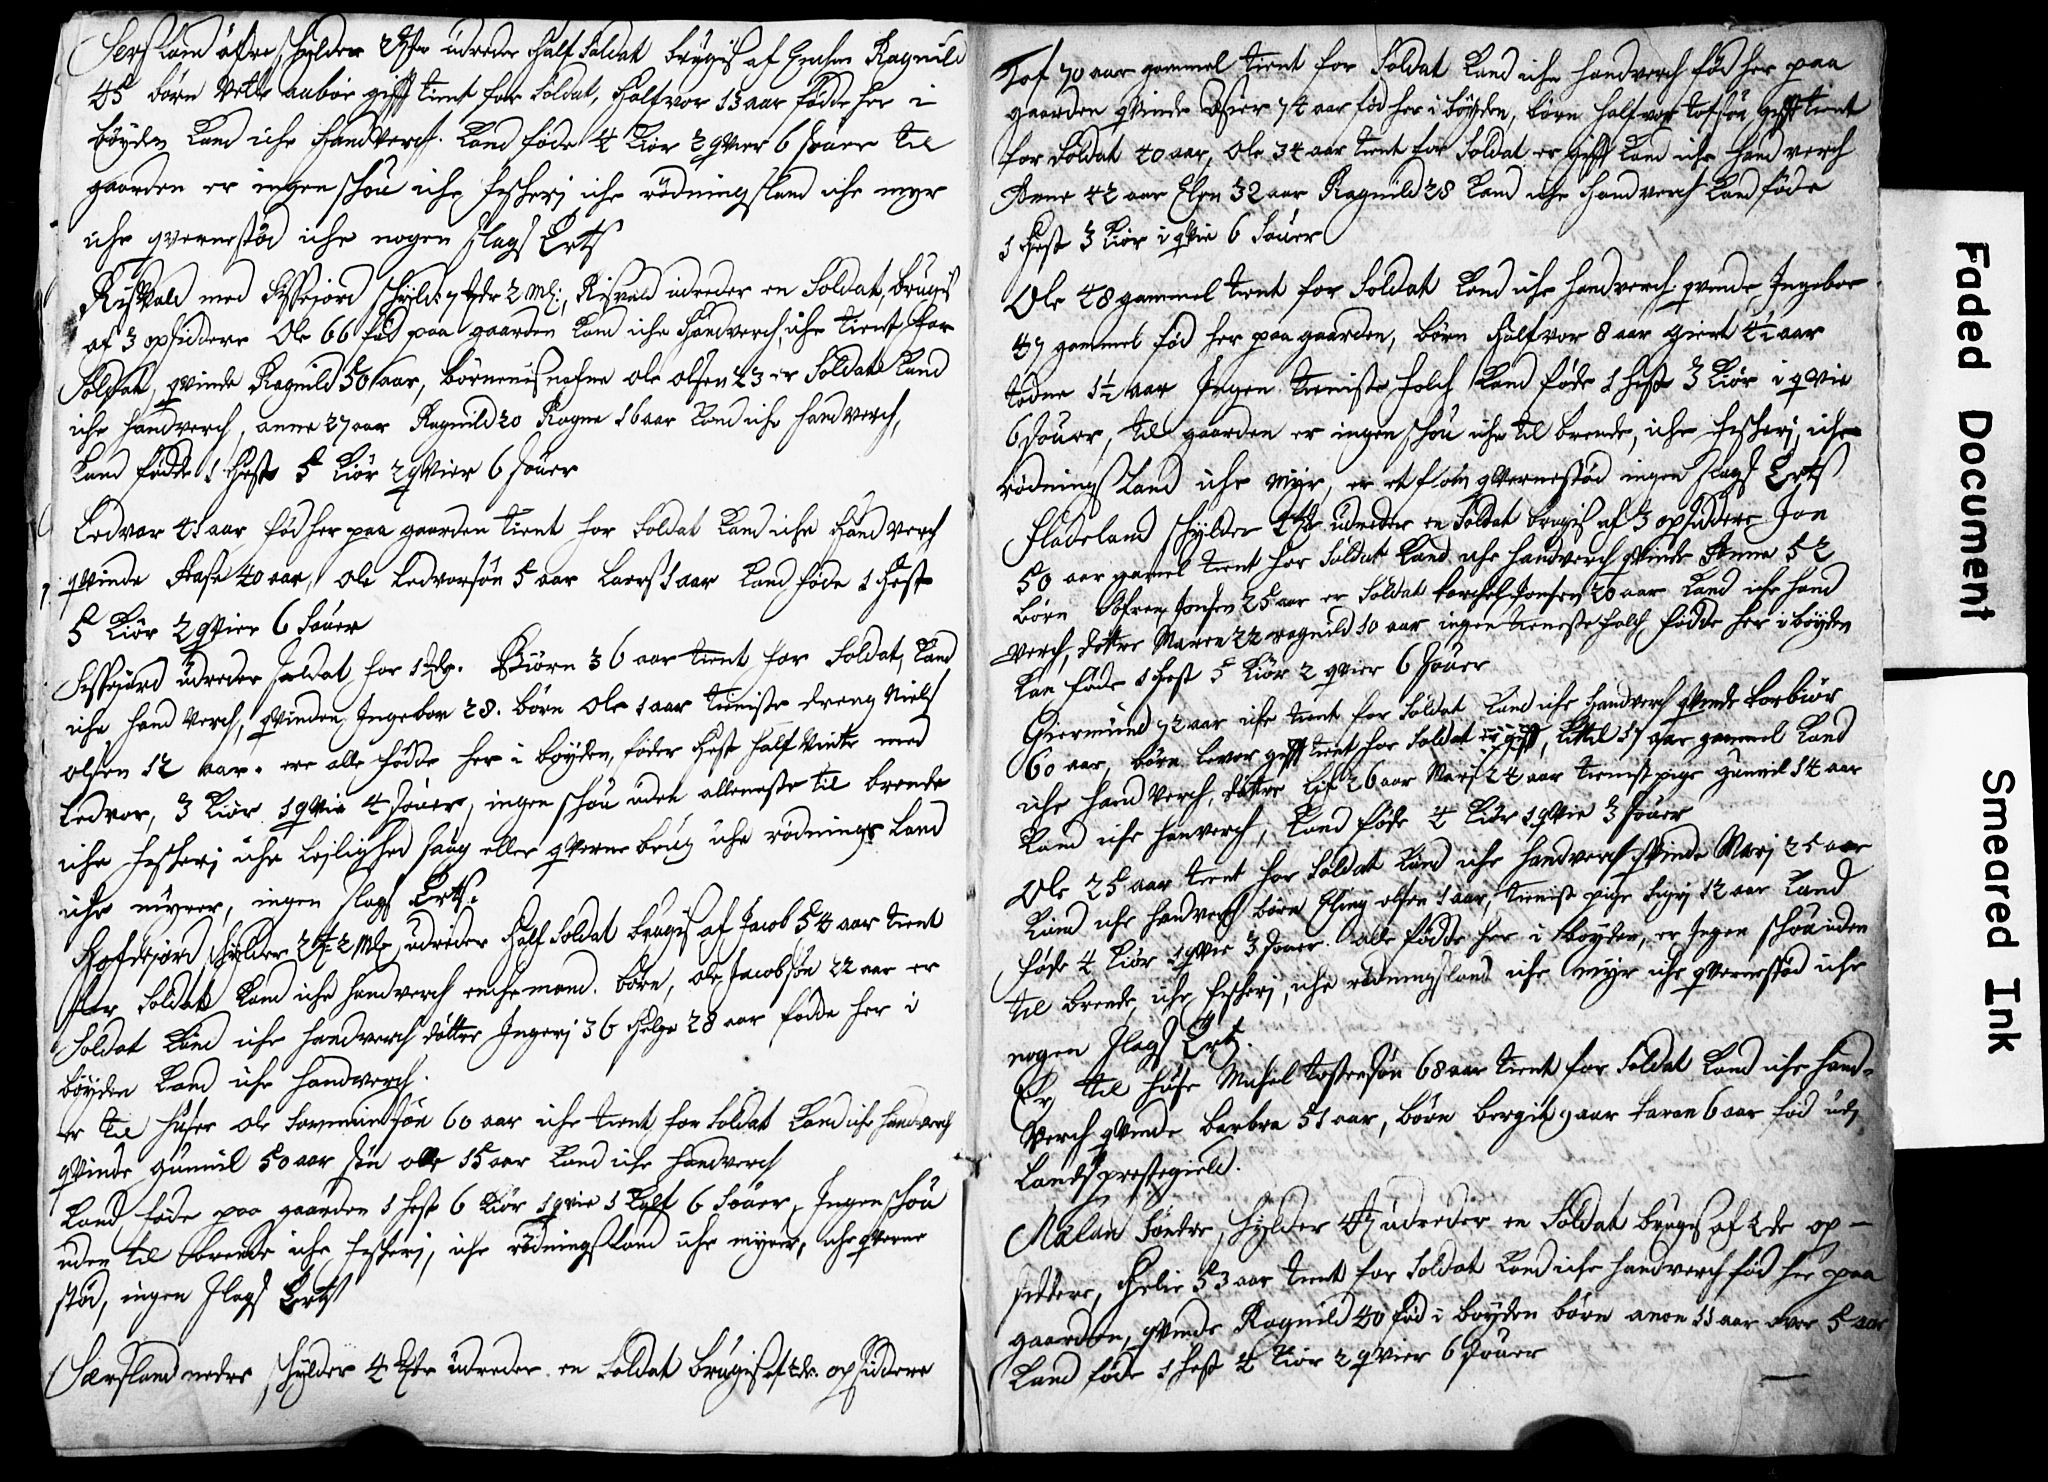 Sersland öfre schylder 2 udreder half Soldat brugis af Enchen Ragnild
45 børn Vetle aaboe gifft tient for Soldat, Halfvor 13 aar fødde her i
bøyden kand iche handverch. kand føde 4 kiør 2 qvier 6 souer til
gaarden er ingen schou iche fischeri iche rødnings land iche myr
iche qvernestød iche nogen slags Erts
Risvald med Essejord schyld: 7 2 Mk:, Risvald udreder en Soldat, brugis
af 3 opsiddere Ole 66 fød paa gaarden kand iche Handverch, iche tient for
Soldat, qvinde Ragnild 50 aar, børnenis nafne ole olsen 23 er Soldat kand
iche handverch, anne 27 aar Ragnild 20 Ragne 16 aar kand iche handverch,
kand fødde 1 hest 5 kiør 2 qvier 6 souer
Ledvar 41 aar fød her paa gaarden tient for Soldat kand iche Handverch
qvinde Aase 40 aar, ole Ledvorsøn 5 aar Laers 1 aar kand føde 1 hest
5 kiør 2 qvier 6 souer
Essejord udreder soldat for 1. Biørn 36 aar tient for Soldat, kand
iche hand verch, qvinden Ingebor 28. børn Ole 1 aar tieniste dreng Niels
olsen 12 aar. ere alle fødde her i bøyden, føder hest half vinter med
Ledvor, 3 kiør 1 qvie 4 souer, ingen schou uden alleneste til brende
iche fischeri iche lejlighed saug eller qverne brug iche rødnings land
iche myrer, ingen slags Erts.
schylder 2 2 Mk udreder half Soldat brugis af Jacob 54 aar tient
for Soldat kand iche handverch enchemand. børn, ole Jacobsøn 22 aar er
Soldat kand iche handverch døttre Ingeri 36 Helge 28 aar fødde her i
bøyden kand iche handverch.
er til huse ole 60 aar iche tient for Soldat kand iche handverch
qvinde gunnil 50 aar søn olle 15 aar kand iche handverch
kand føde paa gaarden 1 hest 6 kiør 1 qvie 1 kalf 6 souer, Ingen schou
uden til brende iche fischeri, iche rødnings land iche myrer, iche qverne
stød, ingen slags Erts
Sersland nedre schylder 4 udreder en Soldat brugis af 2de opsiddere
Tof 70 aar gammel tient for Soldat kand iche handverch fød her paa
gaarden qvinde 74 aar fød her i bøyden, børn halfvor tofsøn gifft tient
for Soldat 40 aar, Ole 34 aar tient for Soldat er gifft kand iche handverch
Anne 42 aar Elen 32 aar Ragnild 28 kand iche handverch kand føde
1 hest 3 kiør 1 qvie 6 souer
Ole 48 gammel tient for Soldat kand iche handverch qvinde Ingebor
47 gammel fød her paa gaarden, børn halfvor 8 aar giert 4½ aar
todne 1½ aar Ingen tieniste folch kand føde 1 hest 3 kiør 1 qvie
6 souer, til gaarden er ingen schou iche til brende, iche fischeri, iche
rødnings land iche myr, er et flom qvernestød ingen slags Erts
Fladeland schylder 4 udreder en Soldat brugis af 3 opsiddere Jon
50 aar gamel tient for Soldat kand iche handverch qvinde Anne 52
børn Jonsen 25 aar er Soldat torchel Jonsen 20 aar kand iche hand
verch, døttre Maren 22 ragnild 10 aar ingen tieneste folch fødde her i bøyden
kan føde 1 hest 5 kiør 2 qvier 6 souer
Giermund 72 aar iche tient for Soldat kand iche handverch qvinde torbiør
60 aar, børn Levor gifft tient for Soldat, kittil 17 aar gammel kand
iche hand verch, døttre Lif 26 aar Mari 24 aar tienist pige gunnil 14 aar
kand iche hanverch, kand føde 4 kiør 1 qvie 3 souer
Ole 25 aar tient for Soldat kand iche handverch qvinde Mari 25 aar
kand iche handverch børn Elling olsen 1 aar, tienist pige Sigri 12 aar kand
føde 4 kiør 1 qvie 3 souer. alle fødde her i bøyden, er Ingen schou uden
til brende, iche fischeri, iche rødnings land iche myr iche qvernestød iche
nogen slags Erts.
Er til huse Michel tostensøn 68 aar tient for Soldat kand iche hand-
verch qvinde barbra 51 aar, børn bergit 9 aar taran 6 aar fød udj
Lands prestegield.
Målan Søndre, schylder 4 udreder en Soldat bruges af 2de op-
siddere, Helie 53 aar tient for Soldat kand iche handverch fød her paa
gaarden, qvinde Ragnild 40 fød i bøyden børn anon 11 aar aver 5 aar
kand føde 1 hest 4 kiør 2 qvier 6 souer
Faded Document
Smeared Ink